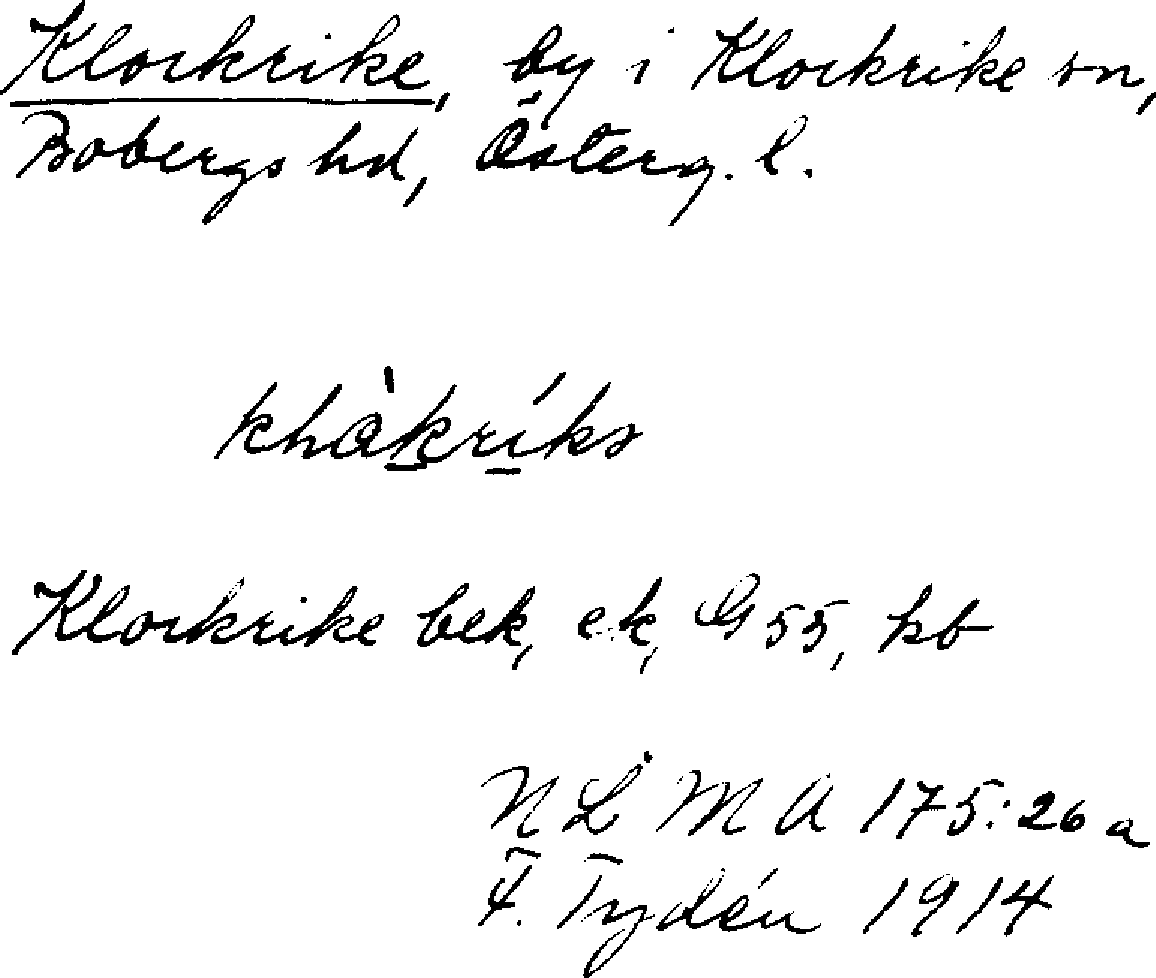 Klockrike, by i Klockrike sn,
Bobergs hd, Österg. l.
Klockrike bek, ek, G 55, kb
N L M A 175:26 a
F. Tydén 1914